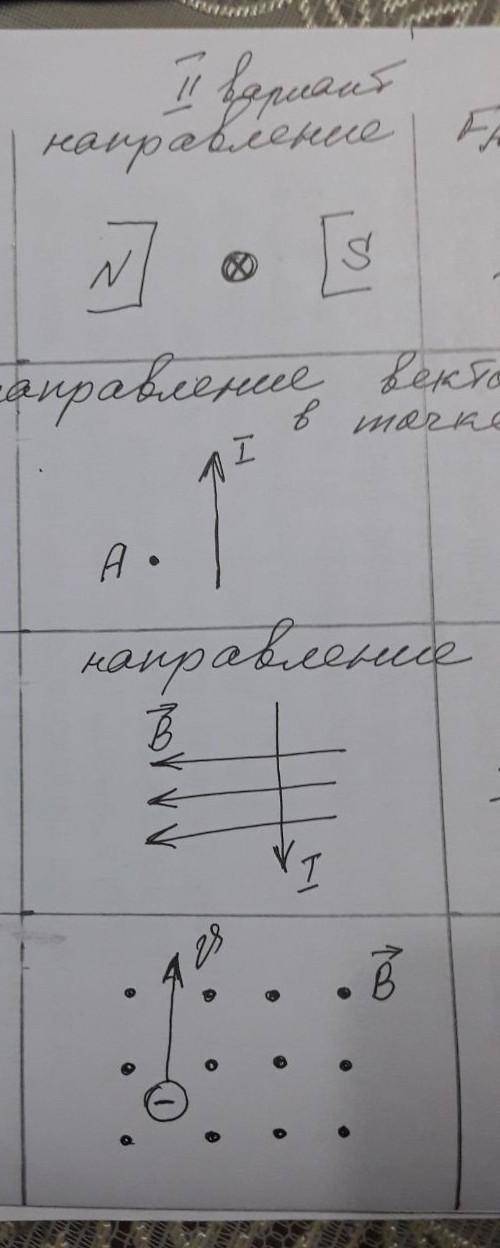 II вариант
направление
N S
направление
в точке
I
A
направление
B
I
B